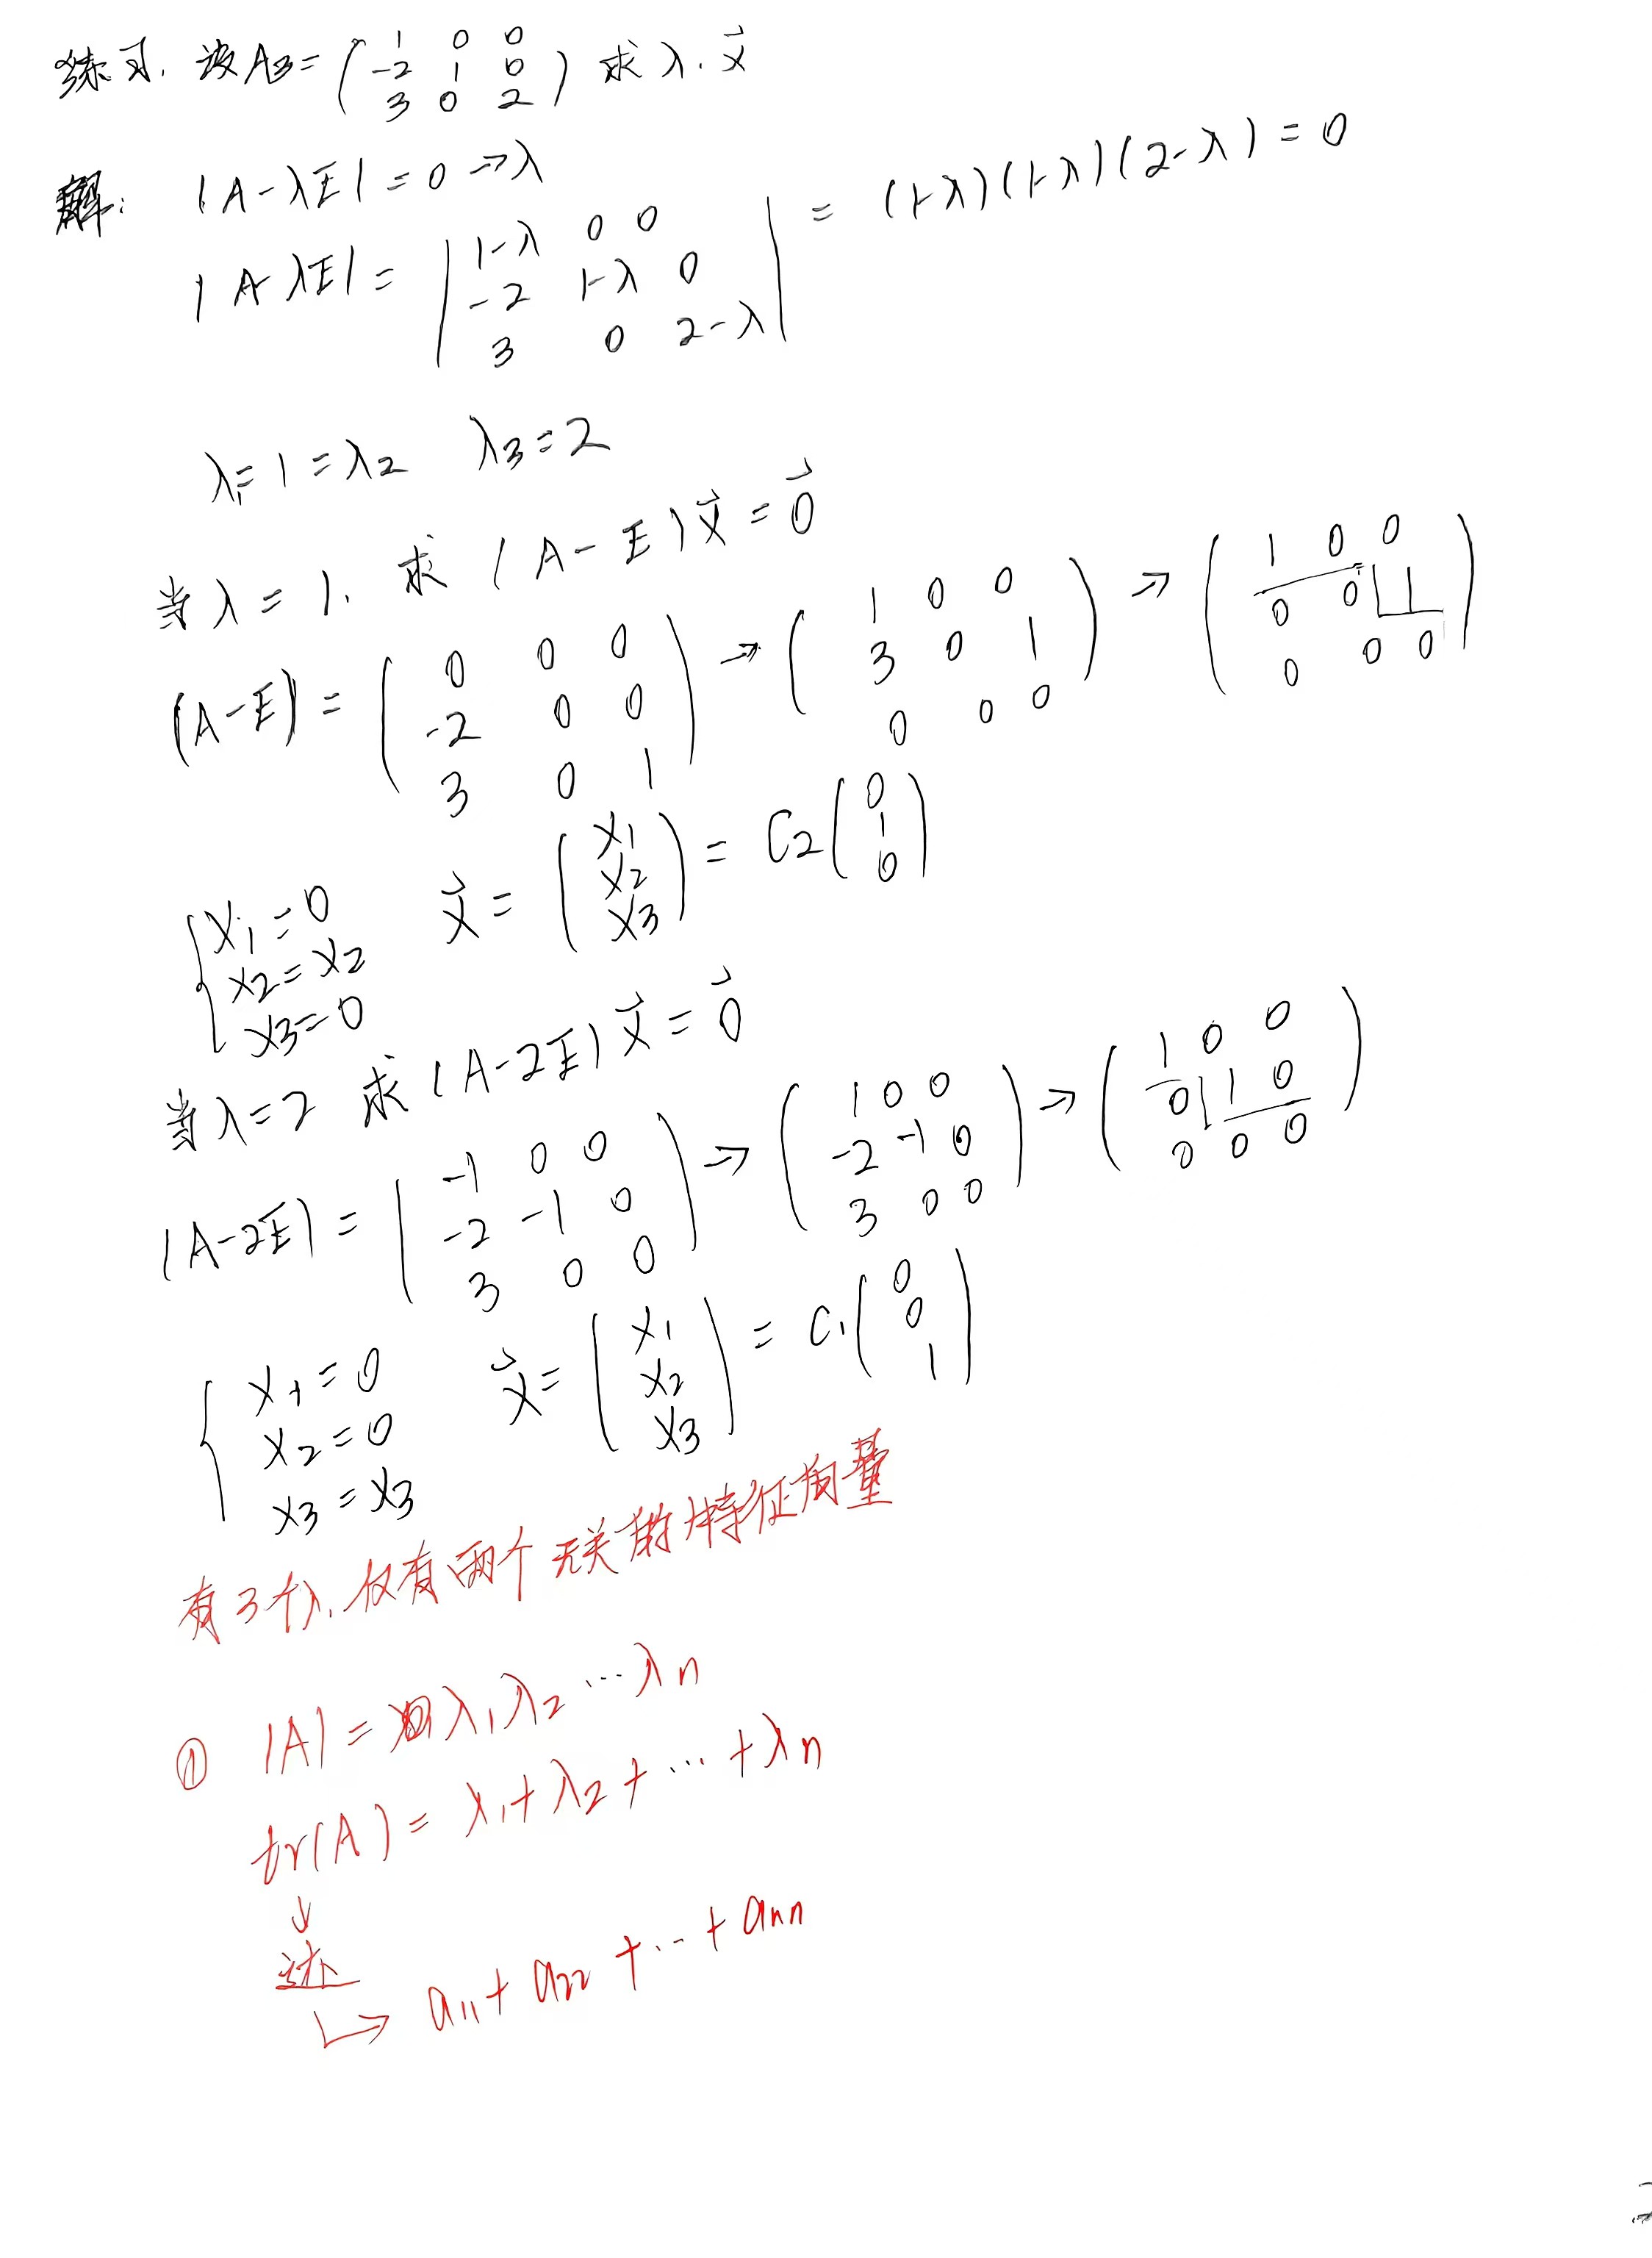 练习. 设A3=(1 0 0; -2 1 0; 3 0 2) 求λ. x⃗
解: |A-λE|=0→λ
|A-λE|=|1-λ 0 0; -2 1-λ 0; 3 0 2-λ|=(1-λ)(1-λ)(2-λ)=0
λ1=1=λ2 λ3=2
当λ=1. 求(A-E)x⃗=0⃗
(A-E)=(0 0 0; -2 0 0; 3 0 1)→(1 0 0; 3 0 1; 0 0 0)→(1 0 0; 0 0 1; 0 0 0)
{x1=0; x2=x2; x3=0 x⃗=(x1; x2; x3)=C2(0; 1; 0)
当λ=2 求(A-2E)x⃗=0⃗
(A-2E)=(-1 0 0; -2 -1 0; 3 0 0)→(1 0 0; -2 -1 0; 3 0 0)→(1 0 0; 0 1 0; 0 0 0)
{x1=0; x2=0; x3=x3 x⃗=(x1; x2; x3)=C1(0; 0; 1)
有3个λ. 仅有两个无关的特征向量
① |A|=λ1λ2…λn
tr(A)=λ1+λ2+…+λn
↓
迹
↳ a11+a22+…+ann